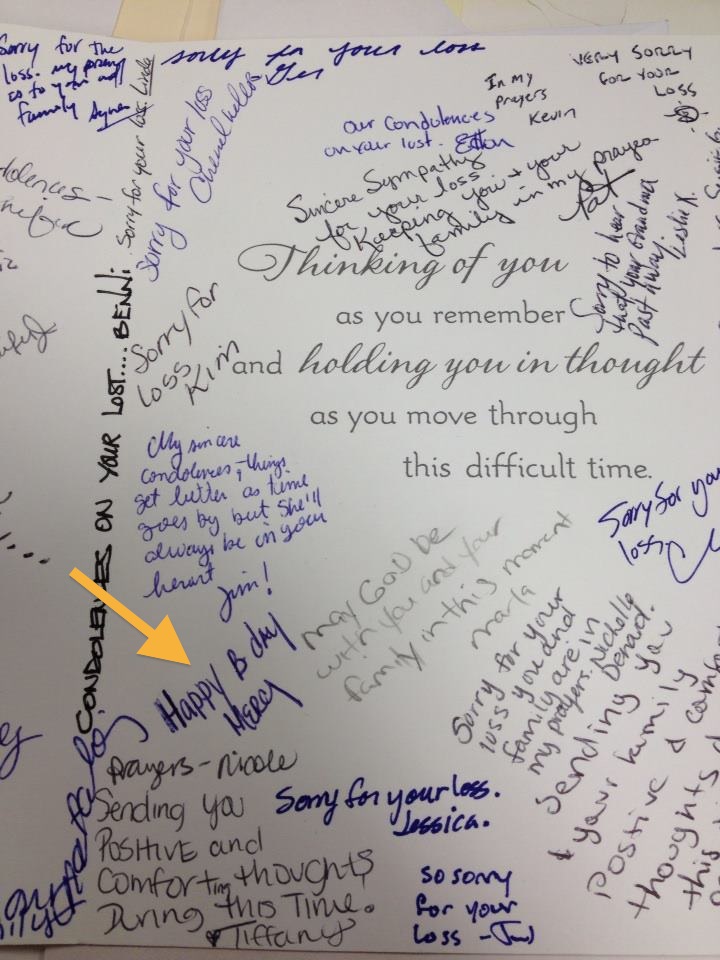 Sorry for the
loss. my prayers
family
sorry for your loss
Sorry for your loss. Linda
Sorry for your loss
In my
prayers
Kevin
VERY SORRY
FOR YOUR
LOSS
our Condolences
on your lost.
Sincere Sympathy
for your loss
Keeping you + your
family in my prayers
Pat
Sorry to hear
that your Grandma
Past Away.
Leslie K.
Thinking of you
as you remember
and holding you in thought
as you move through
this difficult time.
Sorry for
loss
Kim
CONDOLENCES ON YOUR LOST.... BENNI
My sincere
condolences, things
get better as time
goes by but she'll
always be in your
heart
Jim!
Sorry for your
loss
may GOD be
with you and your
family in this moment
marla
Happy B day
MERCY
Sorry for your
loss you and
family are in
my prayers. Nichelle
Sending you
& your family
positive &
thoughts
this
Prayers - Nicole
Sending you
Positive and
Comforting thoughts
During this Time.
Tiffany
Sorry for your loss.
Jessica.
so sorry
for your
loss